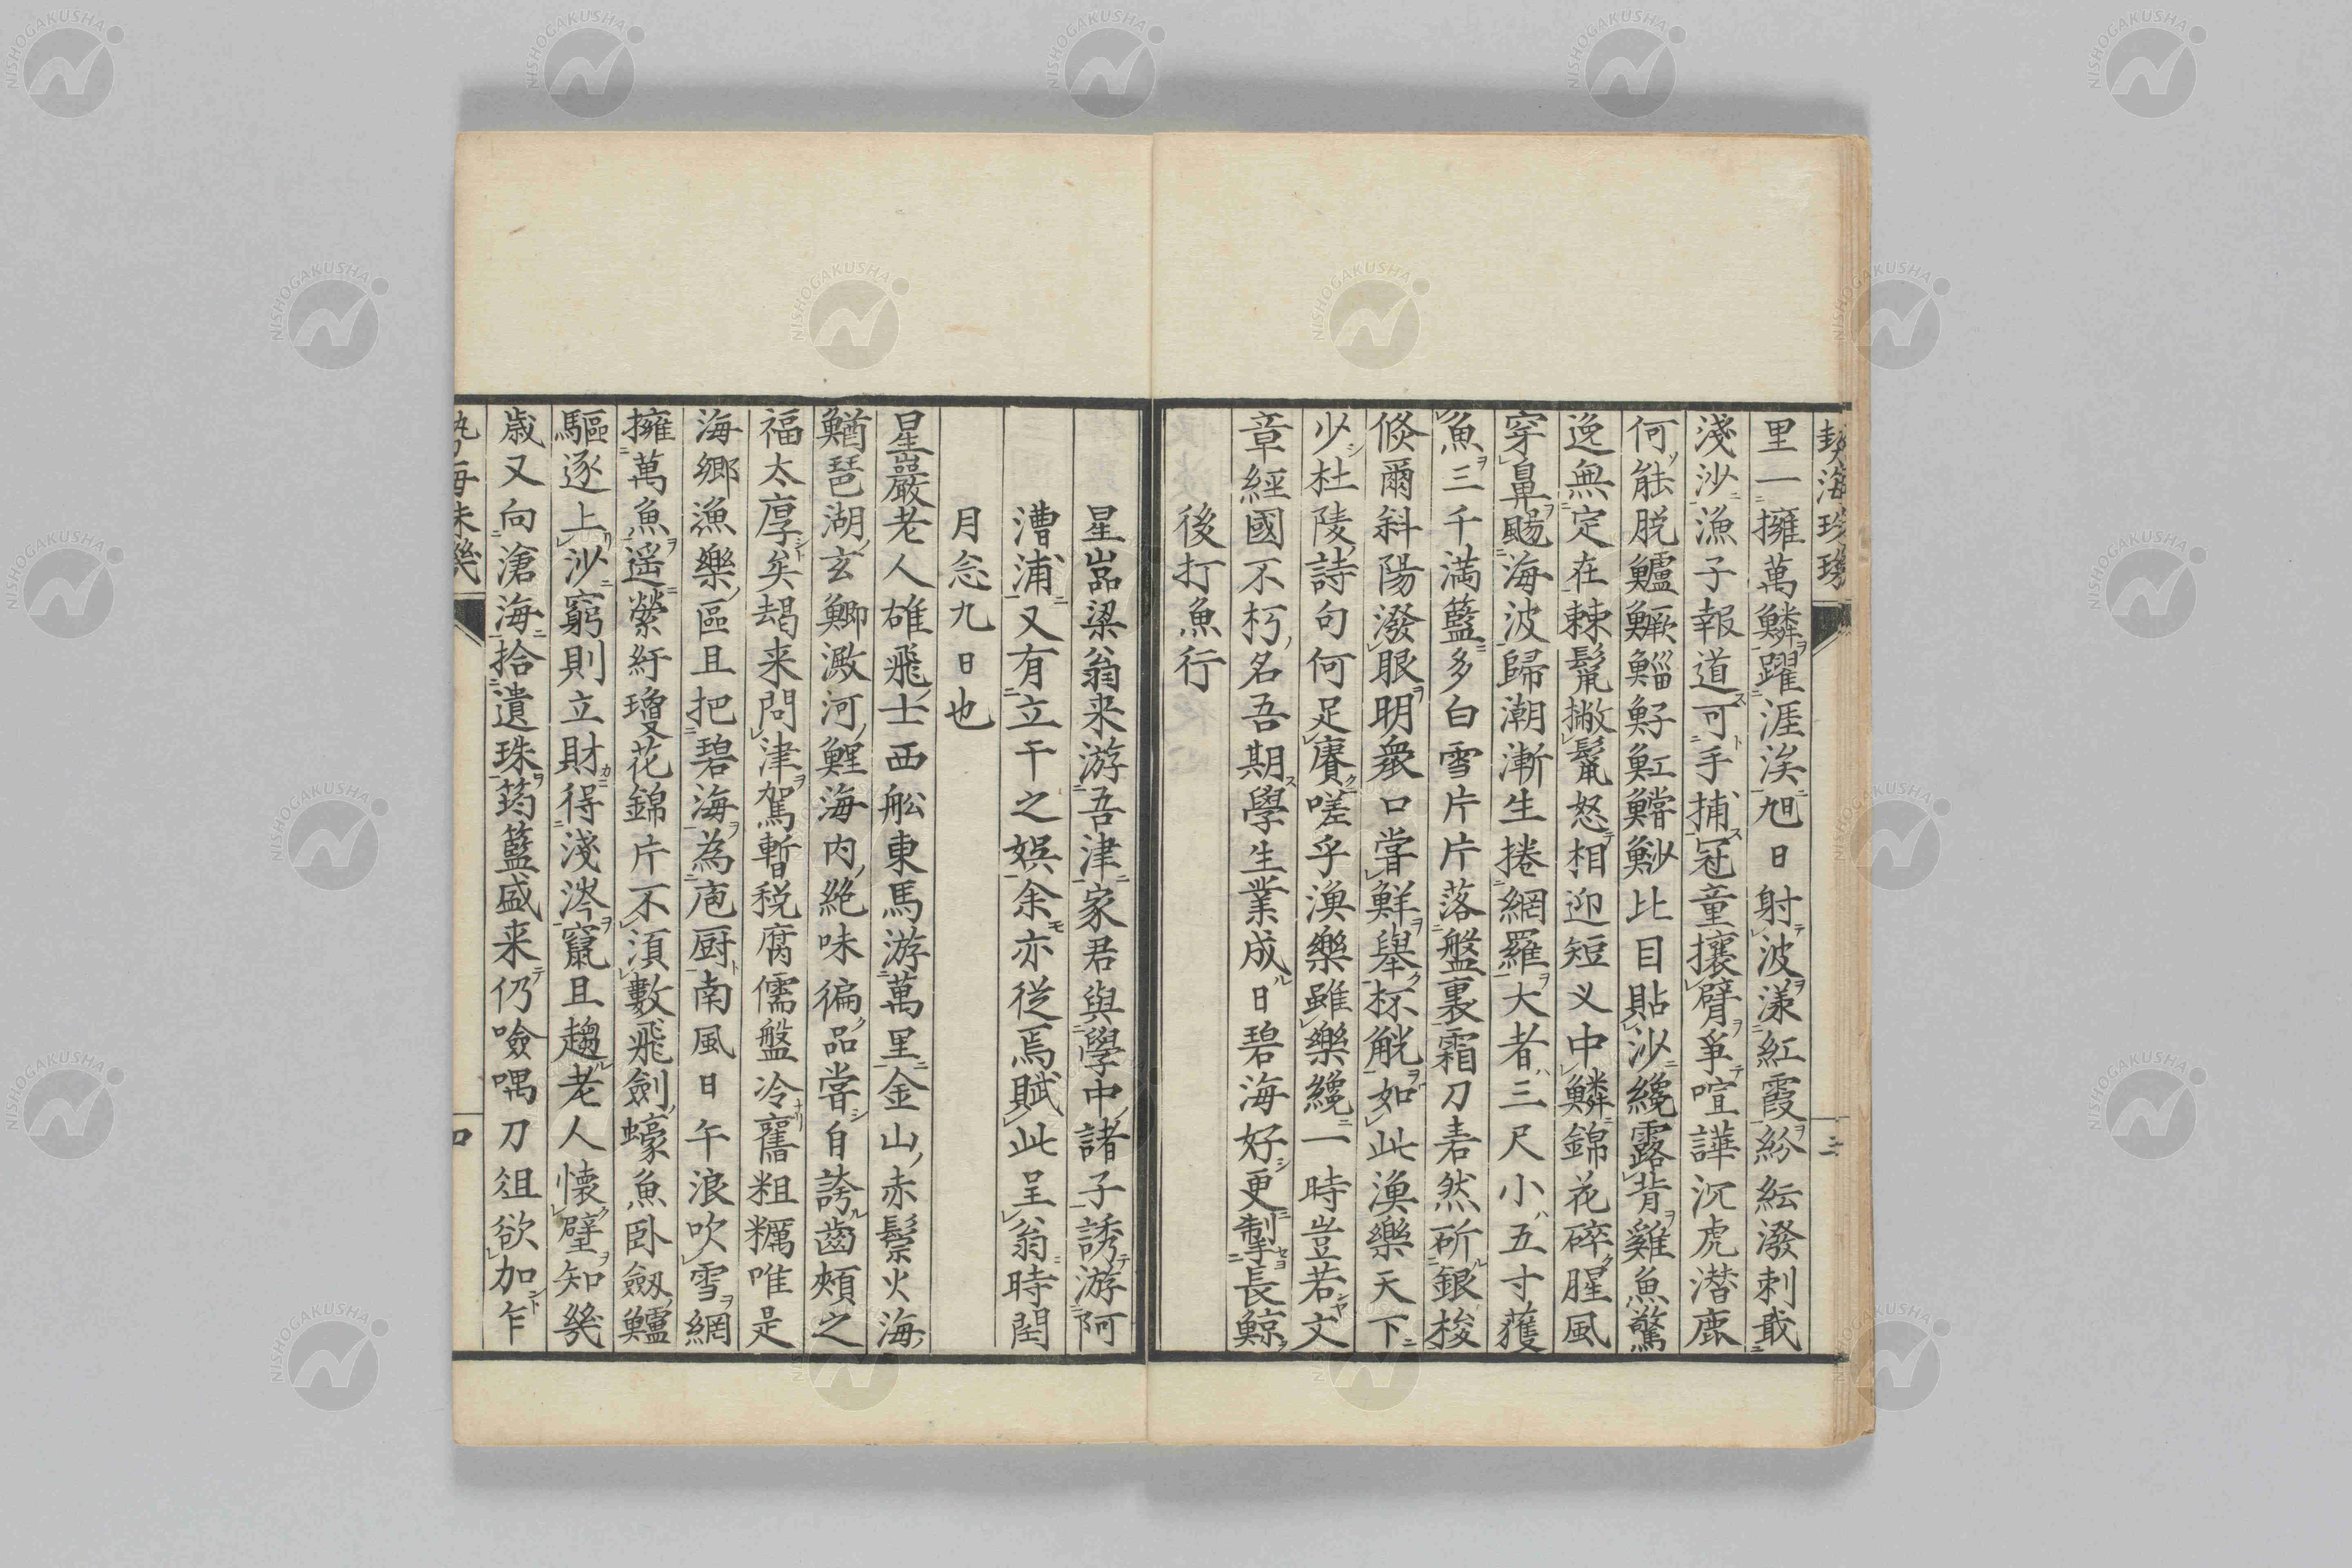 里一擁萬鱗躍涯涘旭日射波漾紅霞紛紜潑刺戢
淺沙漁子報道可手捕冠童攘臂爭喧譁沉虎潛鹿
何能脱鱸鱖鯔魣魟鱨魦比目貼沙纔露背雞魚驚
逸無定在棘鬣撇鬣怒相迎短义中鱗錦花碎腥風
穿鼻颺海波歸潮漸生捲網羅大者三尺小五寸獲
魚三千満籃多白雪片片落盤裏霜刀砉然斫銀梭
倐爾斜陽潑眼明衆口嘗鮮舉杯觥如此漁樂天下
少杜陵詩句何足賡嗟乎漁樂雖樂纔一時豈若文
章經國不朽名吾期學生業成日碧海好更掣長鯨
後打魚行
星嵓梁翁来游吾津家君與學中諸子誘游阿
漕浦又有立干之娯余亦從焉賦此呈翁時閏
月念九日也
星巖老人雄飛士西舩東馬游萬里金山赤鬃火海
鰌琶湖玄鯽澱河鯉海内絶味徧品嘗自誇齒頰之
福太厚矣朅来問津駕暫税腐儒盤冷虀粗糲唯是
海郷漁樂區且把碧海為庖厨南風日午浪吹雪網
擁萬魚遥縈紆瓊花錦片不須數飛劍蠔魚卧劔鱸
驅逐上沙窮則立財得淺涔竄且趨老人懐璧知幾
歳又向滄海拾遺珠筠籃盛来仍噞喁刀俎欲加乍
NISHOGAKUSHA